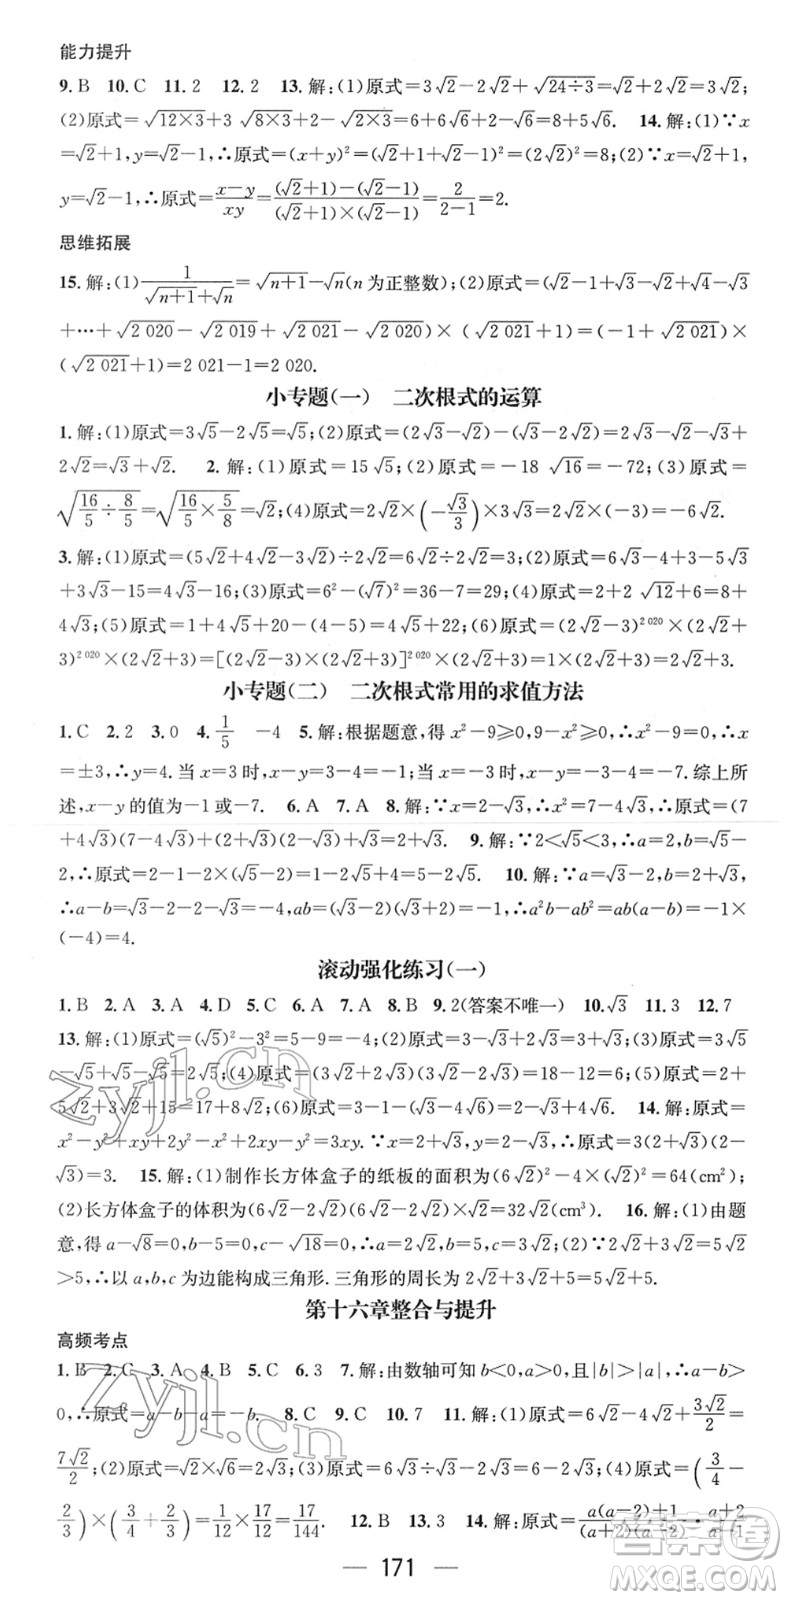 能力提升
9. B 10. C 11. 2 12. 2 13. 解:(1)原式=3√2-2√2+√(24÷3)=√2+2√2=3√2;
(2)原式=√(12×3)+3√(8×3)+2-√(2×3)=6+6√6+2-√6=8+5√6. 14. 解:(1)∵x
=√2+1,y=√2-1,∴原式=(x+y)²=(√2+1+√2-1)²=(2√2)²=8;(2)∵x=√2+1,
y=√2-1,∴原式=(x-y)/(xy)=((√2+1)-(√2-1))/((√2+1)×(√2-1))=2/(2-1)=2.
思维拓展
15. 解:(1)1/(√(n+1)+√n)=√(n+1)-√n(n为正整数);(2)原式=(√2-1+√3-√2+√4-√3
+…+√2 020-√2 019+√2 021-√2 020)×(√2 021+1)=(-1+√2 021)×
(√2 021+1)=2 021-1=2 020.
小专题(一) 二次根式的运算
1. 解:(1)原式=3√5-2√5=√5;(2)原式=(2√3-√2)-(√3-2√2)=2√3-√2-√3+
2√2=√3+√2. 2. 解:(1)原式=15√5;(2)原式=-18√16=-72;(3)原式=
√(16/5÷8/5)=√(16/5×5/8)=√2;(4)原式=2√2×(-√3/3)×3√3=2√2×(-3)=-6√2.
3. 解:(1)原式=(5√2+4√2-3√2)÷2√2=6√2÷2√2=3;(2)原式=6√3-4-5√3
+3√3-15=4√3-16;(3)原式=6²-(√7)²=36-7=29;(4)原式=2+2√12+6=8+
4√3;(5)原式=1+4√5+20-(4-5)=4√5+22;(6)原式=(2√2-3)^2 020×(2√2+
3)^2 020×(2√2+3)=[(2√2-3)×(2√2+3)]^2 020×(2√2+3)=1×(2√2+3)=2√2+3.
小专题(二) 二次根式常用的求值方法
1. C 2. 2 3. 0 4. 1/5 -4 5. 解:根据题意,得x²-9≥0,9-x²≥0,∴x²-9=0,∴x
=±3,∴y=4.当x=3时,x-y=3-4=-1;当x=-3时,x-y=-3-4=-7.综上所
述,x-y的值为-1或-7. 6. A 7. A 8. 解:∵x=2-√3,∴x²=7-4√3,∴原式=(7
+4√3)(7-4√3)+(2+√3)(2-√3)+√3=1+1+√3=2+√3. 9. 解:∵2<√5<3,∴a=2,b=√5-
2,∴原式=2-1-2×(√5-2)=1-2√5+4=5-2√5. 10. 解:∵a=√3-2,b=√3+2,
∴a-b=√3-2-2-√3=-4,ab=(√3-2)×(√3+2)=-1,∴a²b-ab²=ab(a-b)=-1×
(-4)=4.
滚动强化练习(一)
1. B 2. A 3. A 4. D 5. C 6. A 7. A 8. B 9. 2(答案不唯一) 10. √3 11. 3 12. 7
13. 解:(1)原式=(√5)²-3²=5-9=-4;(2)原式=3-√3+2√3=3+√3;(3)原式=3√5
-√5+√5-√5=2√5;(4)原式=(3√2+2√3)(3√2-2√3)=18-12=6;(5)原式=2+
5√2+3√2+15=17+8√2;(6)原式=3-1-(-4√3)×√2=2+4√6. 14. 解:原式=
x²-y²+xy+2y²-x²+2xy-y²=3xy.∵x=2+√3,y=2-√3,∴原式=3(2+√3)(2-
√3)=3. 15. 解:(1)制作长方体盒子的纸板的面积为(6√2)²-4×(√2)²=64(cm²);
(2)长方体盒子的体积为(6√2-2√2)(6√2-2√2)×√2=32√2(cm³). 16. 解:(1)由题
意,得a-√8=0,b-5=0,c-√18=0,∴a=2√2,b=5,c=3√2;(2)∵2√2+3√2=5√2
>5,∴以a,b,c为边能构成三角形.三角形的周长为2√2+3√2+5=5√2+5.
第十六章整合与提升
高频考点
1. B 2. C 3. A 4. B 5. C 6. 3 7. 解:由数轴可知b<0,a>0,且|b|>|a|,∴a-b>
0,∴原式=a-b-a=-b. 8. C 9. C 10. 7 11. 解:(1)原式=6√2-4√2+3√2/2=
7√2/2;(2)原式=√2×√6=2√3;(3)原式=6√3÷√3-√3×2=6-2√3;(4)原式=(3/4-
2/3)×(3/4+2/3)=1/12×17/12=17/144. 12. B 13. 3 14. 解:原式=(a(a-2)+1)/((a+2)(a-2))·(a+2)/(a-1)
171
zyjl.cn
zyjl.cn
答案圈
MXQE.COM